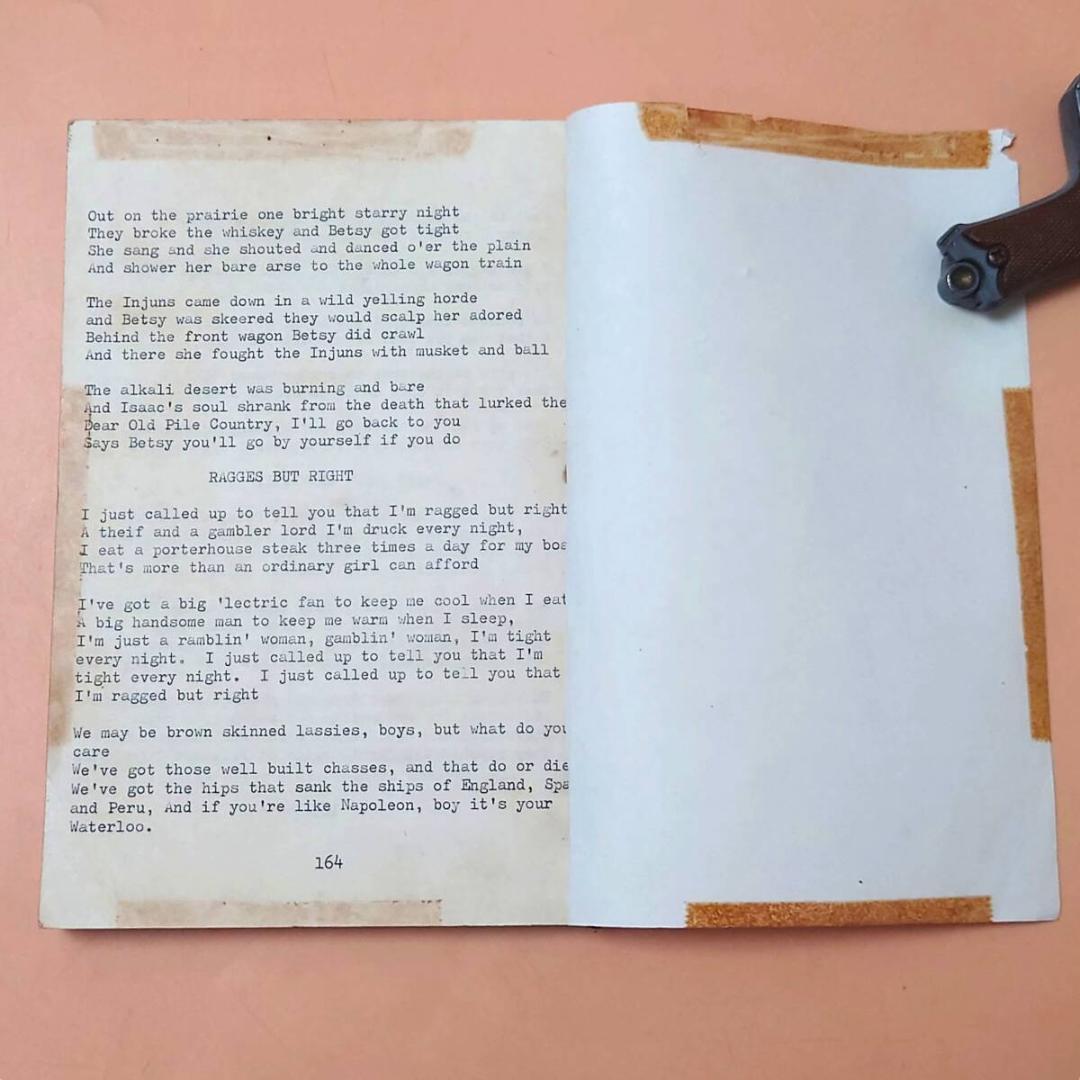 Out on the prairie one bright starry night
They broke the whiskey and Betsy got tight
She sang and she shouted and danced o'er the plain
And shower her bare arse to the whole wagon train
The Injuns came down in a wild yelling horde
and Betsy was skeered they would scalp her adored
Behind the front wagon Betsy did crawl
And there she fought the Injuns with musket and ball
The alkali desert was burning and bare
And Isaac's soul shrank from the death that lurked the
Dear Old Pile Country, I'll go back to you
Says Betsy you'll go by yourself if you do
RAGGES BUT RIGHT
I just called up to tell you that I'm ragged but right
A theif and a gambler lord I'm druck every night,
I eat a porterhouse steak three times a day for my
That's more than an ordinary girl can afford
I've got a big 'lectric fan to keep me cool when I eat
A big handsome man to keep me warm when I sleep,
I'm just a ramblin' woman, gamblin' woman, I'm tight
every night. I just called up to tell you that I'm
tight every night. I just called up to tell you that
I'm ragged but right
We may be brown skinned lassies, boys, but what do you
care
We've got those well built chasses, and that do or die
We've got the hips that sank the ships of England,
and Peru, And if you're like Napoleon, boy it's your
Waterloo.
164